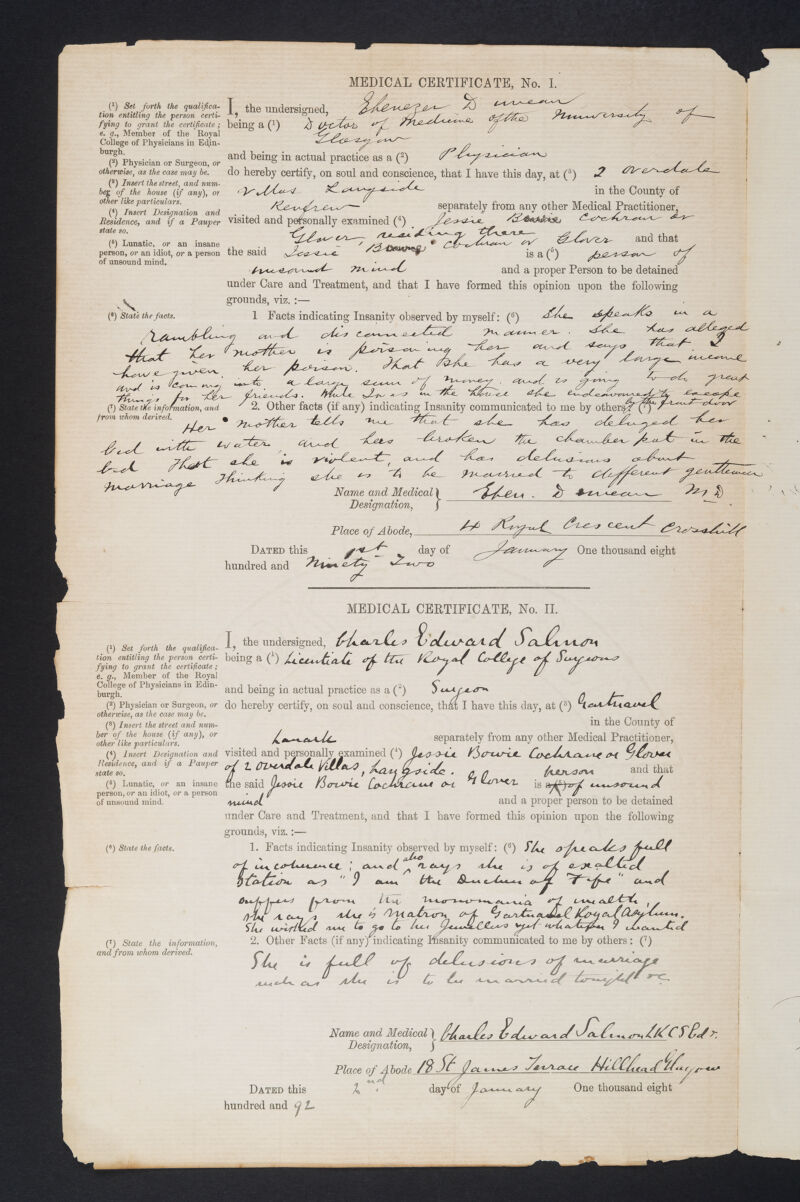 MEDICAL CERTIFICATE, No. I.
(¹) Set forth the qualifica-
tion entitling the person certi-
fying to grant the certificate;
e. g., Member of the Royal
College of Physicians in Edin-
burgh.
(²) Physician or Surgeon, or
otherwise, as the case may be.
(³) Insert the street, and num-
ber of the house (if any), or
other like particulars.
(⁴) Insert Designation and
Residence, and if a Pauper
state so.
(⁵) Lunatic, or an insane
person, or an idiot, or a person
of unsound mind.
I, the undersigned, Ebenezer Duncan
being a (¹) Doctor of Medicine of the University of
Glasgow
and being in actual practice as a (²) Physician
do hereby certify, on soul and conscience, that I have this day, at (³) 2 Overdale
Villas Langside in the County of
Renfrew separately from any other Medical Practitioner,
visited and personally examined (⁴) Jessie Bowie Cochran or
Glover, residing there and that
the said Jessie Bowie Cochran or Glover is a (⁵) person of
unsound mind and a proper Person to be detained
under Care and Treatment, and that I have formed this opinion upon the following
grounds, viz. :—
(⁶) State the facts.
1 Facts indicating Insanity observed by myself: (⁶) She speaks in a
rambling and disconnected manner. She has alleged
that her mother is poisoning her and says that I
have given her poison. That she has a very large income
and is coming into a large sum of money and is going to do great
things for her friends. While I was in the house she endeavoured to escape
by the front door
(⁷) State the information, and
from whom derived.
2. Other facts (if any) indicating Insanity communicated to me by others? (⁷)
Her mother tells me that she has deluged her
bed with water and has broken the chamber pot in the
bed That she is violent, and has delusions about
marriage Thinking she is to be married to different gentlemen
Name and Medical Designation, Eben. Duncan M.D.
Place of Abode, 4 Royal Crescent Crosshill
DATED this 1st day of January One thousand eight
hundred and Ninety Two
MEDICAL CERTIFICATE, No. II.
(¹) Set forth the qualifica-
tion entitling the person certi-
fying to grant the certificate;
e. g., Member of the Royal
College of Physicians in Edin-
burgh.
(²) Physician or Surgeon, or
otherwise, as the case may be.
(³) Insert the street and num-
ber of the house (if any), or
other like particulars.
(⁴) Insert Designation and
Residence, and if a Pauper
state so.
(⁵) Lunatic, or an insane
person, or an idiot, or a person
of unsound mind.
I, the undersigned, Charles Edward Salmon
being a (¹) Licentiate of the Royal College of Surgeons
and being in actual practice as a (²) Surgeon
do hereby certify, on soul and conscience, that I have this day, at (³) Gartnavel
in the County of
Lanark separately from any other Medical Practitioner,
visited and personally examined (⁴) Jessie Bowie Cochrane or Glover
of 2 Overdale Villas, Langside. and that
the said Jessie Bowie Cochrane or Glover is a (⁵) person of unsound
mind and a proper person to be detained
under Care and Treatment, and that I have formed this opinion upon the following
grounds, viz. :—
(⁶) State the facts.
1. Facts indicating Insanity observed by myself: (⁶) She speaks full
of incoherence; and also says she is of exalted
station as "I am the Duchess of Fife" and
suffers from the monomania of wealth,
she says she is Matron of Gartnavel Royal Asylum.
She wished me to go to her Jewellers & get whatever I wanted
(⁷) State the information,
and from whom derived.
2. Other Facts (if any) indicating Insanity communicated to me by others: (⁷)
She is full of delusions of marriage
such as she is to be married tonight &c
Name and Medical Designation, Charles Edward Salmon L.R.C.S Edr.
Place of Abode 18 St James Terrace Hillhead Glasgow
DATED this 2nd day of January One thousand eight
hundred and 92